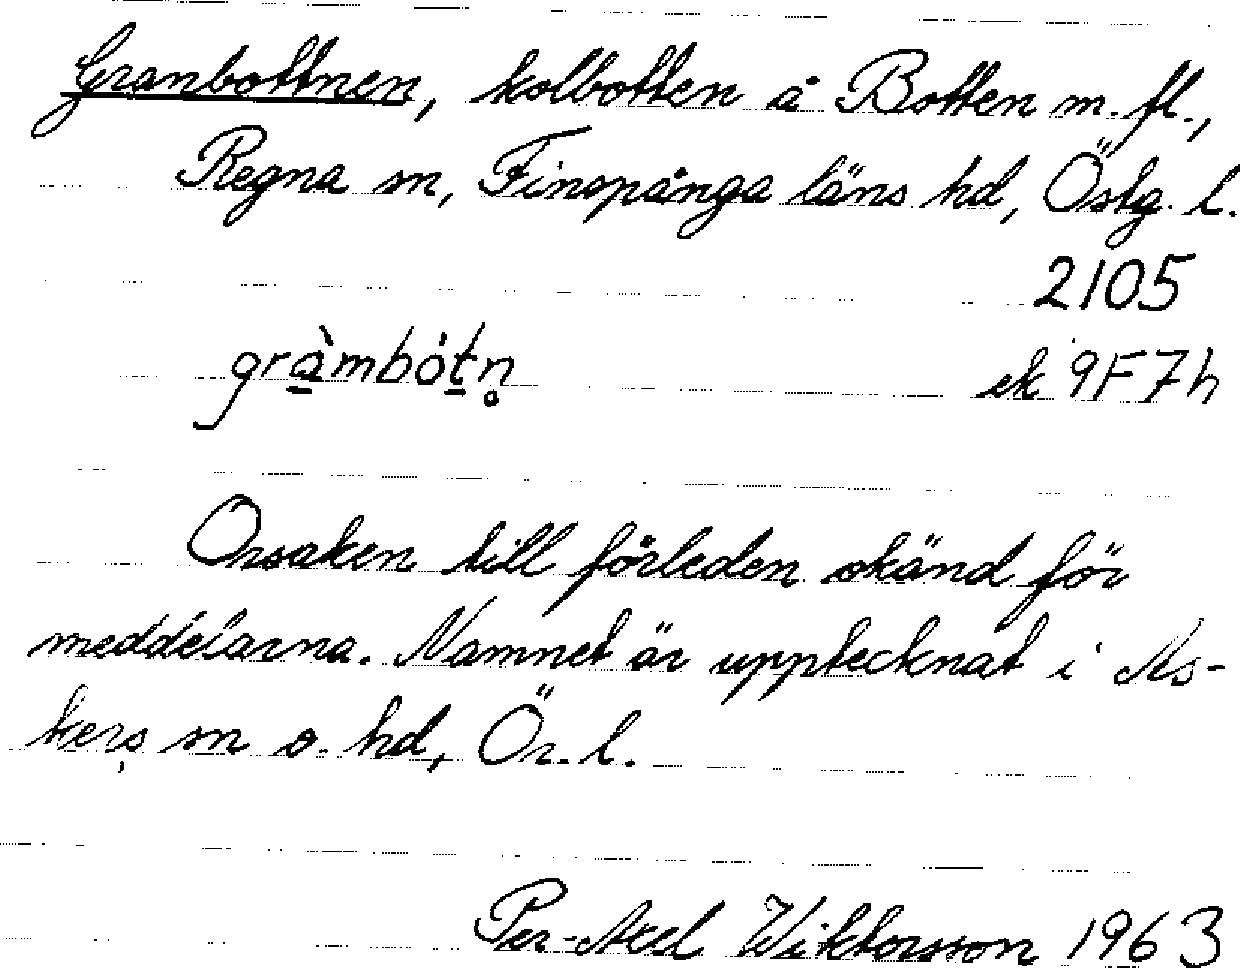 Granbottnen, kolbotten å Botten m. fl.,
Regna sn, Finspånga läns hd, Östg. l.
2105
gràmbótn̥ ek 9F7h
Orsaken till förleden okänd för
meddelarna. Namnet är upptecknat i As-
kers sn o. hd, Ör. l.
Per-Axel Wiktorsson 1963